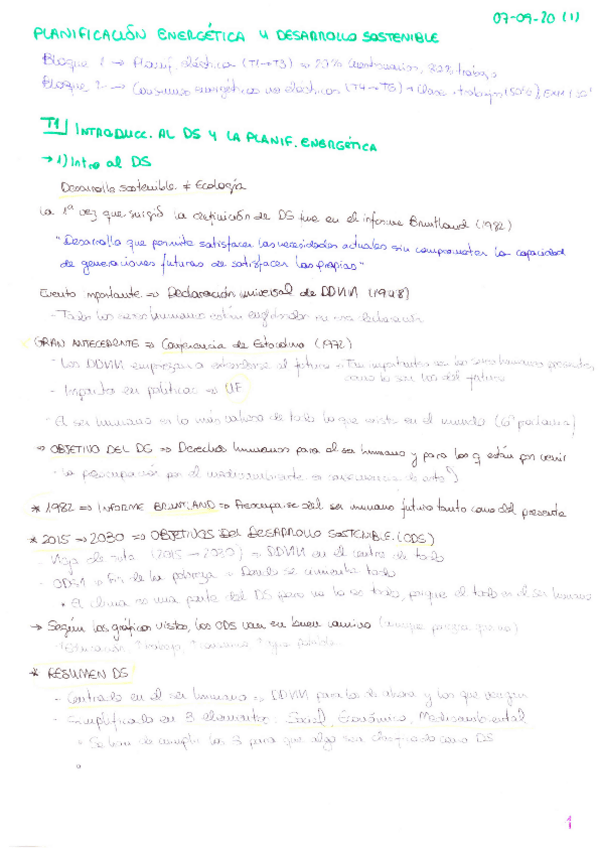 07-09-20 (1)
PLANIFICACIÓN ENERGÉTICA Y DESARROLLO SOSTENIBLE
Bloque 1 → Planif. eléctrica (T1→T3) → 20% Cuestionarios, 80% trabajo
Bloque 2 → Consumos energéticos no eléctricos (T4→T6) → Clase + trabajos (50%)
T1 INTRODUCC. AL DS Y LA PLANIF. ENERGÉTICA
→ 1) Intro al DS
Desarrollo sostenible ≠ Ecología
La 1ª vez que surgió la definición de DS fue en el informe Bruntland (1982)
"Desarrollo que permite satisfacer las necesidades actuales sin comprometer la capacidad
de generaciones futuras de satisfacer las propias"
Evento importante ⇒ Declaración universal de DDHH (1948)
- Todos los seres humanos están englobados en una declaración
GRAN ANTECEDENTE ⇒ Conferencia de Estocolmo (1972)
- Los DDHH empiezan a extenderse al futuro → Tan importantes son los seres humanos presentes,
como lo son los del futuro
- Impacto en políticas → UE
- El ser humano es lo más valioso de todo lo que existe en el mundo
→ OBJETIVO DEL DS ⇒ Derechos humanos para el ser humano y para los q están por venir
- La preocupación por el medioambiente es consecuencia de esto
* 1982 ⇒ INFORME BRUNTLAND ⇒ Preocuparse del ser humano futuro tanto como del presente
* 2015 → 2030 ⇒ OBJETIVOS DEL DESARROLLO SOSTENIBLE (ODS)
- Hoja de ruta (2015 → 2030) ⇒ DDHH en el centro de todo
- ODS1 → Fin de la pobreza → Donde se cimienta todo
• El clima es una parte del DS pero no lo es todo, porque el todo es el ser humano
→ Según los gráficos vistos, los ODS van en buen camino (aunque parezca que no)
↑Educación, ↑trabajo,
* RESUMEN DS
- Centrado en el ser humano ⇒ DDHH para los de ahora y los que vengan
- Simplificado en 3 elementos: Social, Económico, Medioambiental
• Se han de cumplir los 3 para que algo sea clasificado como DS
1